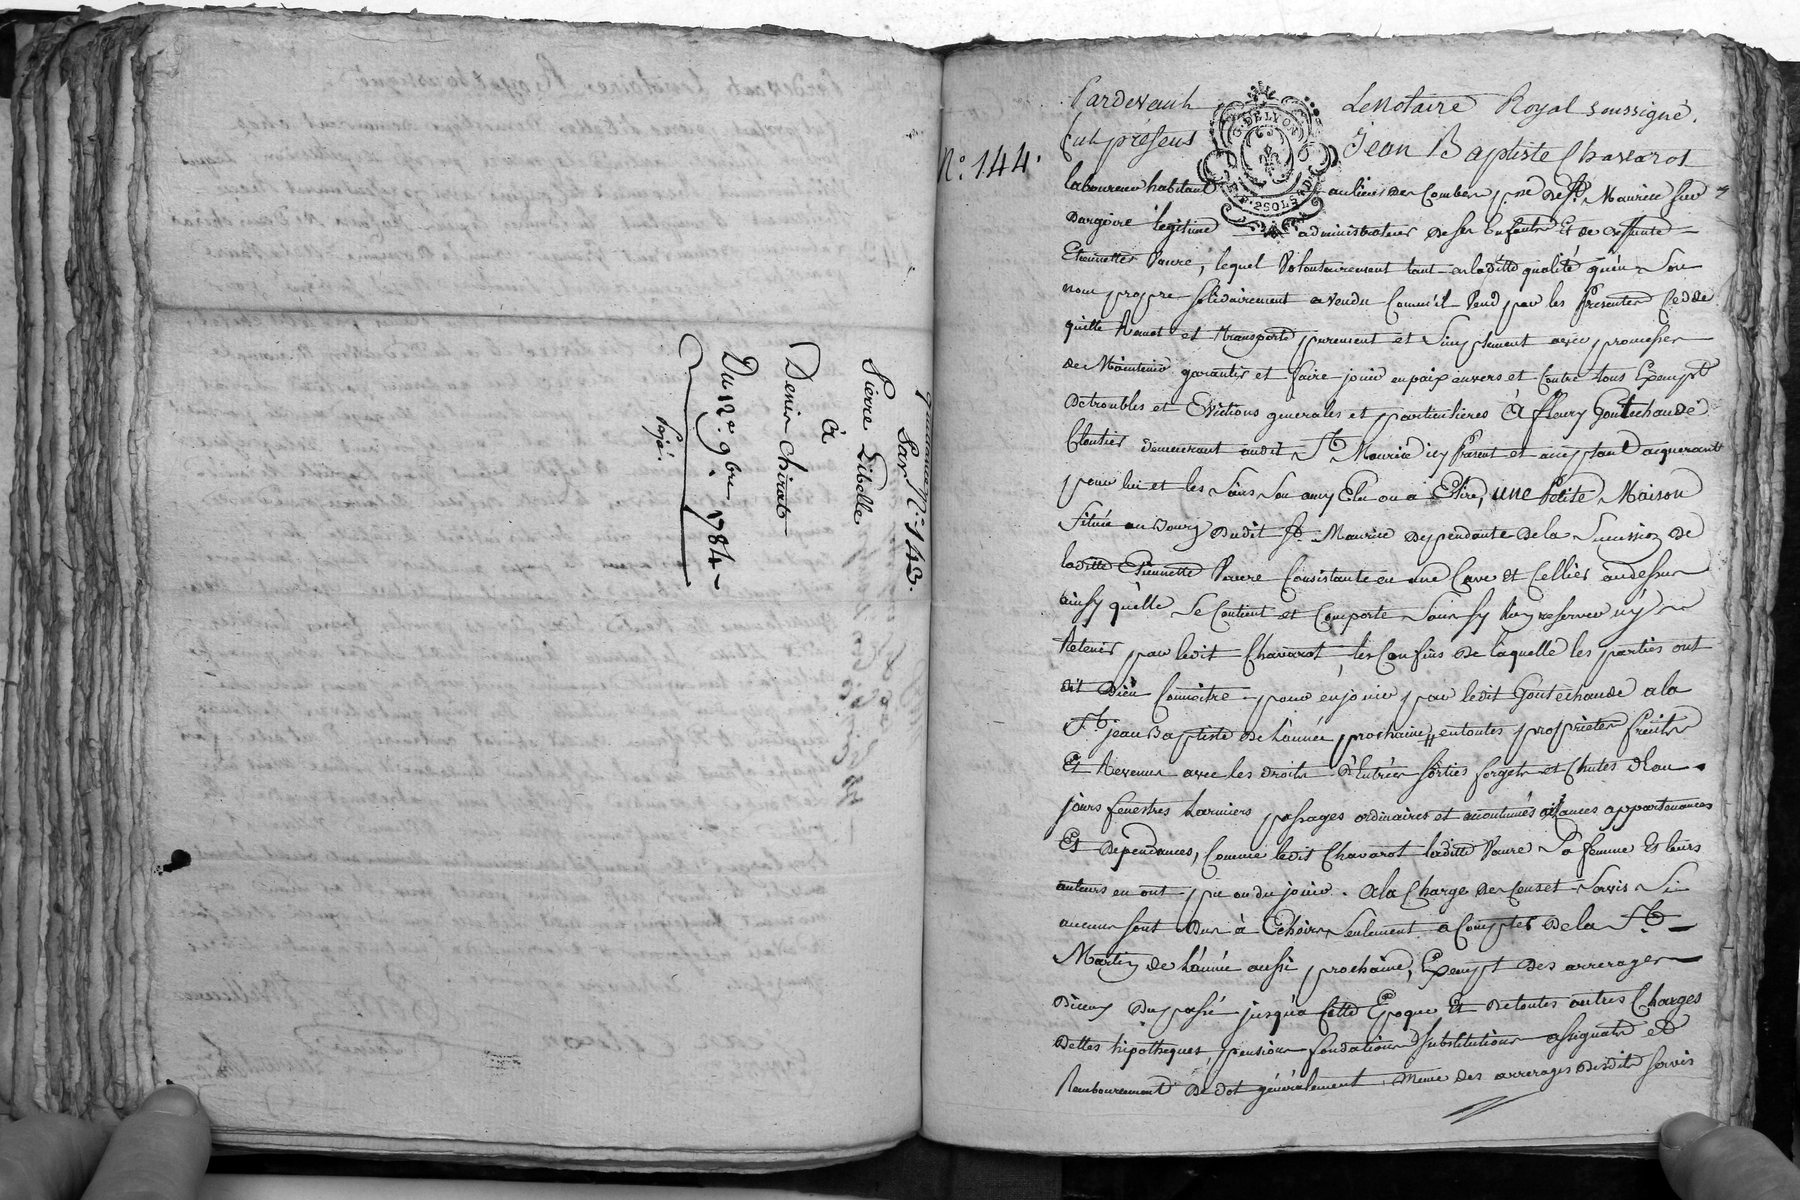 quittance N.º 143.
Par
Pierre Libelle
à
Denis Chirat
Du 12.e 9bre. 1784
N.º 144.
Pardevant Le Notaire Royal soussigné.
fut présens Jean Baptiste Chavarot
laboureur habitant au lieu des Combes psse de St. Maurice sur
Dargoire légitime administrateur de ses Enfants Et de deffunte
Etiennette Vaure, lequel Volontairement tant en laditte qualité qu'en Son
nom propre solidairement a vendu Comm'il Vend par les Presentes Cedde
quitte Remet et transporte purement et Simplement avec promesse
de Maintenir garantir et faire jouir en paix envers et Contre tous Exempt
de troubles et Evictions generales et particulieres à fleury Goutechaude
Cloutier demeurant audit St. Maurice icy Present et acceptant acquerant
pour lui et les Siens Son amy Elu ou a Elire, une Petite Maison
Située au Bourg dudit St. Maurice Dependante de la Succession de
laditte Etiennette Vaure Consistante en une Cave et Cellier au dessus
ainsy qu'elle Se Contient et Comporte Sans sy Rien reserver ny
Retenir par ledit Chavarot, les Confins de laquelle les parties ont
dit Bien Connoitre pour en jouir par ledit Goutechaude a la
St. jean Baptiste de l'année prochaine en toutes proprietes fruits
Et Revenus avec les droits d'Entrées sorties forgets et Chutes d'Eau
jours fenestres larmiers passages ordinaires et accoutumés aisances appartenances
Et Dependances, Comme ledit Chavarot laditte Vaure Sa femme Et leurs
auteurs en ont pu ou du jouir. a la Charge des Cens et Servis Si
aucuns sont Dus à Echoirs Seulement a Compter de la St.
Martin de l'année aussi prochaine, Exempt des arrerages
diceux du passé jusqu'a Cette Epoque Et de toutes autres Charges
Dettes hipotheques, pensions fondations substitutions assignats et
Remboursement de dot généralement, Meme des arrerages desdits servis
G. DE LYON
2 SOLS